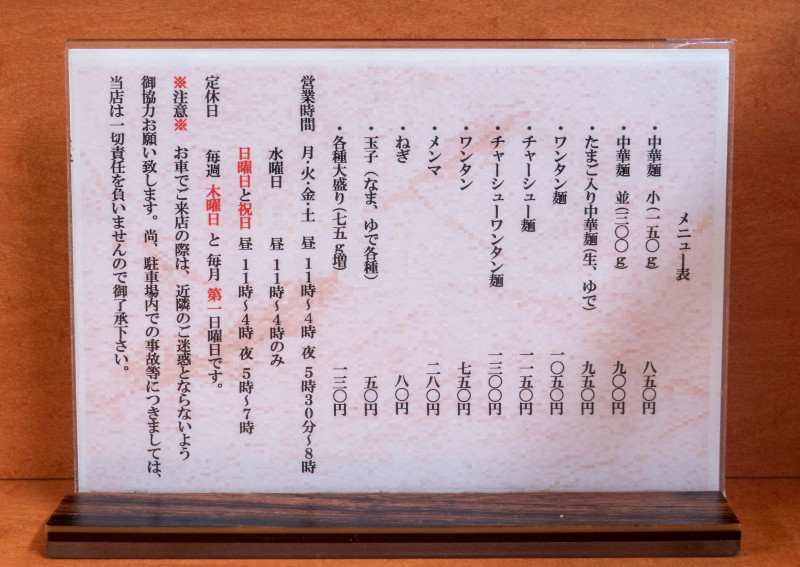 メニュー表
・中華麺 小(一五〇g) 八五〇円
・中華麺 並(三〇〇g) 九〇〇円
・たまご入り中華麺(生、ゆで) 九五〇円
・ワンタン麺 一〇五〇円
・チャーシュー麺 一一五〇円
・チャーシューワンタン麺 一三〇〇円
・ワンタン 七五〇円
・メンマ 二八〇円
・ねぎ 八〇円
・玉子(なま、ゆで各種) 五〇円
・各種大盛り(七五g増) 一三〇円
営業時間 月・火・金・土 昼 11時〜4時 夜 5時30分〜8時
水曜日 昼 11時〜4時のみ
日曜日と祝日 昼 11時〜4時 夜 5時〜7時
定休日 毎週 木曜日 と 毎月 第一日曜日です。
※注意※ お車でご来店の際は、近隣のご迷惑とならないよう
御協力お願い致します。尚、駐車場内での事故等につきましては、
当店は一切責任を負いませんので御了承下さい。